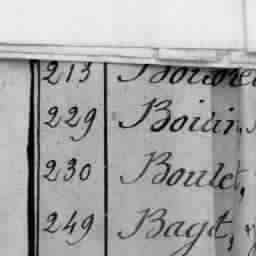 213
229 Boivin,
230 Boulet,
249 Bagt,